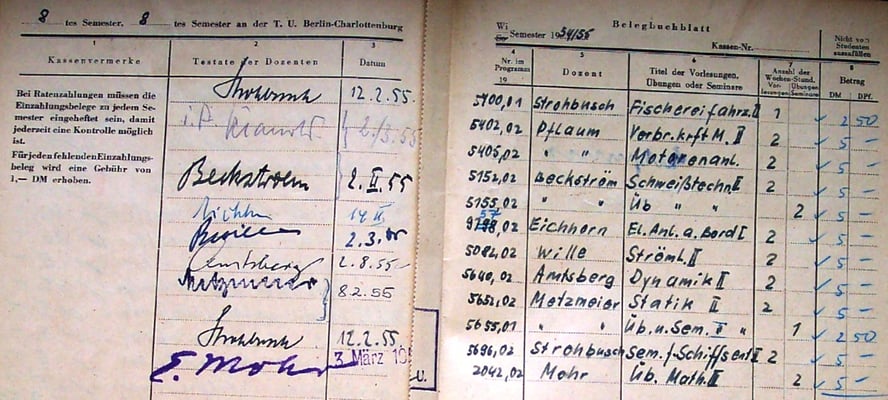 8 tes Semester, 8 tes Semester an der T. U. Berlin-Charlottenburg
1
Kassenvermerke
2
Testate der Dozenten
3
Datum
Bei Ratenzahlungen müssen die
Einzahlungsbelege zu jedem Se-
mester eingeheftet sein, damit
jederzeit eine Kontrolle möglich
ist.
Für jeden fehlenden Einzahlungs-
beleg wird eine Gebühr von
1,— DM erhoben.
Strohbusch 12.2.55
Beckström 2.II.55
14.II.
2.3.55
Amtsberg 2.8.55
Metzmeier 8.2.55
Strohbusch 12.2.55
E. Mohr 3. März 19
U.
Belegbuchblatt
Wi
So Semester 1954/55
Kassen-Nr.
Nicht von
Studenten
auszufüllen
4
Nr. im
Programm
19
5
Dozent
6
Titel der Vorlesungen,
Übungen oder Seminare
7
Anzahl der
Wochen-Stund.
Vor-
lesung
Übungen
Seminare
8
Betrag
DM DPf.
5400,01 Strohbusch Fischereifahrz. II 1 2 50
5402,02 Pflaum Verbr.krft M. II 2 5 –
5405,02 " " Motorenanl. 2 5 –
5152,02 Beckström Schweißtechn. II 2 5 –
5155,02 " " Üb " " 2 5 –
Eichhorn El. Anl. a. Bord I 2 5 –
5082,02 Wille StrömL. II 2 5 –
5640,02 Amtsberg Dynamik II 2 5 –
5652,02 Metzmeier Statik II 2 5 –
5655,01 " " Üb. u. Sem. " 1 2 50
5696,02 Strohbusch Sem. f. Schiffsentw. II 2 5 –
2042,02 Mohr Üb. Math. II 2 5 –